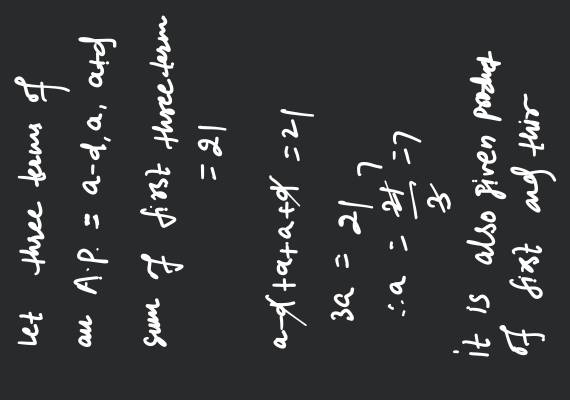 let three terms of
an A.P. = a-d, a, a+d
sum of first three term
= 21
a-d+a+a+d = 21
3a = 21
∴ a = 21/3 7 = 7
it is also given product
of first and thir